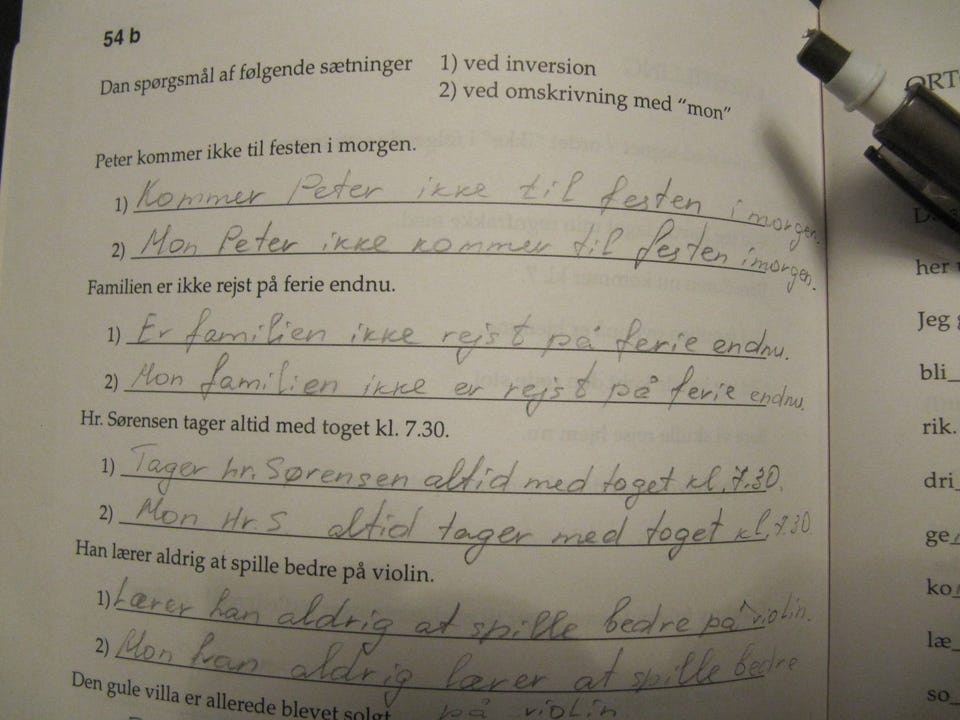 54 b
Dan spørgsmål af følgende sætninger 1) ved inversion
2) ved omskrivning med "mon"
Peter kommer ikke til festen i morgen.
1) Kommer Peter ikke til festen i morgen.
2) Mon Peter ikke kommer til festen i morgen.
Familien er ikke rejst på ferie endnu.
1) Er familien ikke rejst på ferie endnu.
2) Mon familien ikke er rejst på ferie endnu.
Hr. Sørensen tager altid med toget kl. 7.30.
1) Tager hr. Sørensen altid med toget kl. 7.30.
2) Mon Hr. S altid tager med toget kl. 7.30
Han lærer aldrig at spille bedre på violin.
1) Lærer han aldrig at spille bedre på violin.
2) Mon han aldrig lærer at spille bedre
på violin
Den gule villa er allerede blevet solgt
ORT
her
Jeg
bli_
rik.
dri_
ge
ko
læ_
so_